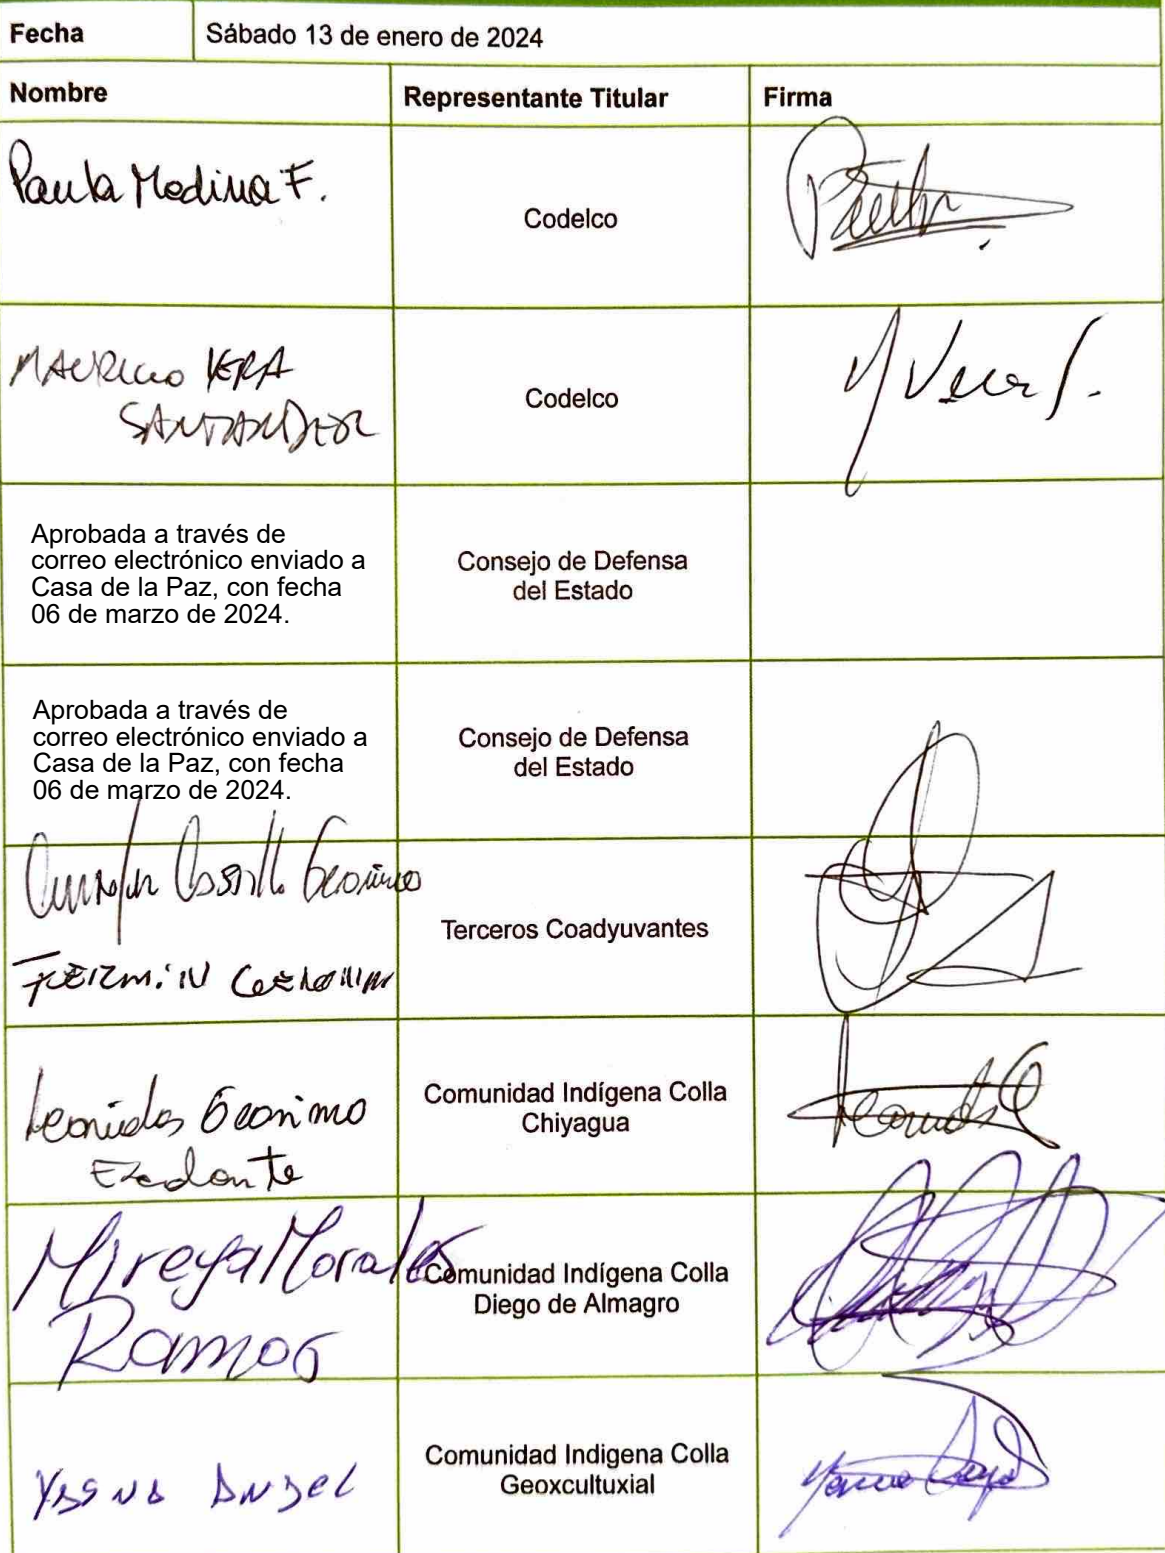 Fecha Sábado 13 de enero de 2024
Nombre Representante Titular Firma
Paula Medina F.
Codelco
MAURICIO VERA
SANTANDER
Codelco
M Vera S.
Aprobada a través de
correo electrónico enviado a
Casa de la Paz, con fecha
06 de marzo de 2024.
Consejo de Defensa
del Estado
Aprobada a través de
correo electrónico enviado a
Casa de la Paz, con fecha
06 de marzo de 2024.
Consejo de Defensa
del Estado
Castillo Geronimo
FERMIN
Terceros Coadyuvantes
Leonidas Geronimo
Comunidad Indígena Colla
Chiyagua
Mireya Morales
Ramos
Comunidad Indígena Colla
Diego de Almagro
Yasna Angel
Comunidad Indigena Colla
Geoxcultuxial